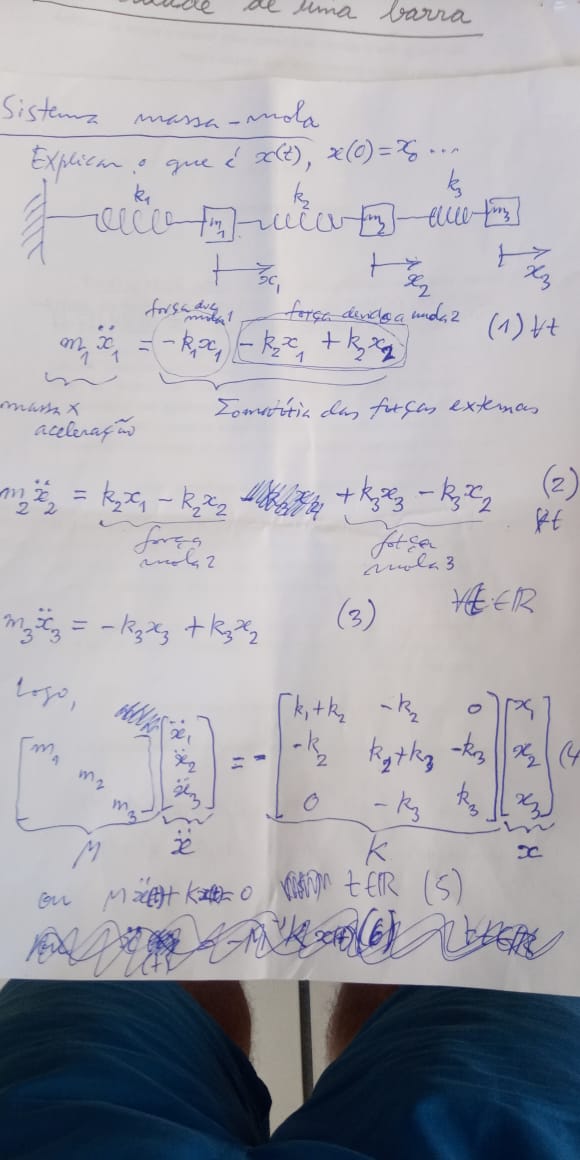 de uma barra
Sistema massa-mola
Explicar o que é x(t), x(0)=x₀ ...
k₁ k₂ k₃
m₁ m₂ m₃
x₁ x₂ x₃
força da mola 1 força devido a mola 2
m₁ẍ₁ = -k₁x₁ -k₂x₁ + k₂x₂ (1) ∀t
massa x aceleração
Somatória das forças externas
m₂ẍ₂ = k₂x₁ - k₂x₂ + k₃x₃ - k₃x₂ (2)
∀t
força mola 2 força mola 3
m₃ẍ₃ = -k₃x₃ + k₃x₂ (3) ∀t∈ℝ
Logo,
m₁ ẍ₁ k₁+k₂ -k₂ 0 x₁
m₂ ẍ₂ = - -k₂ k₂+k₃ -k₃ x₂ (4
m₃ ẍ₃ 0 -k₃ k₃ x₃
M ẍ K x
ou Mẍ(t)+Kx(t)=0 t∈ℝ (5)